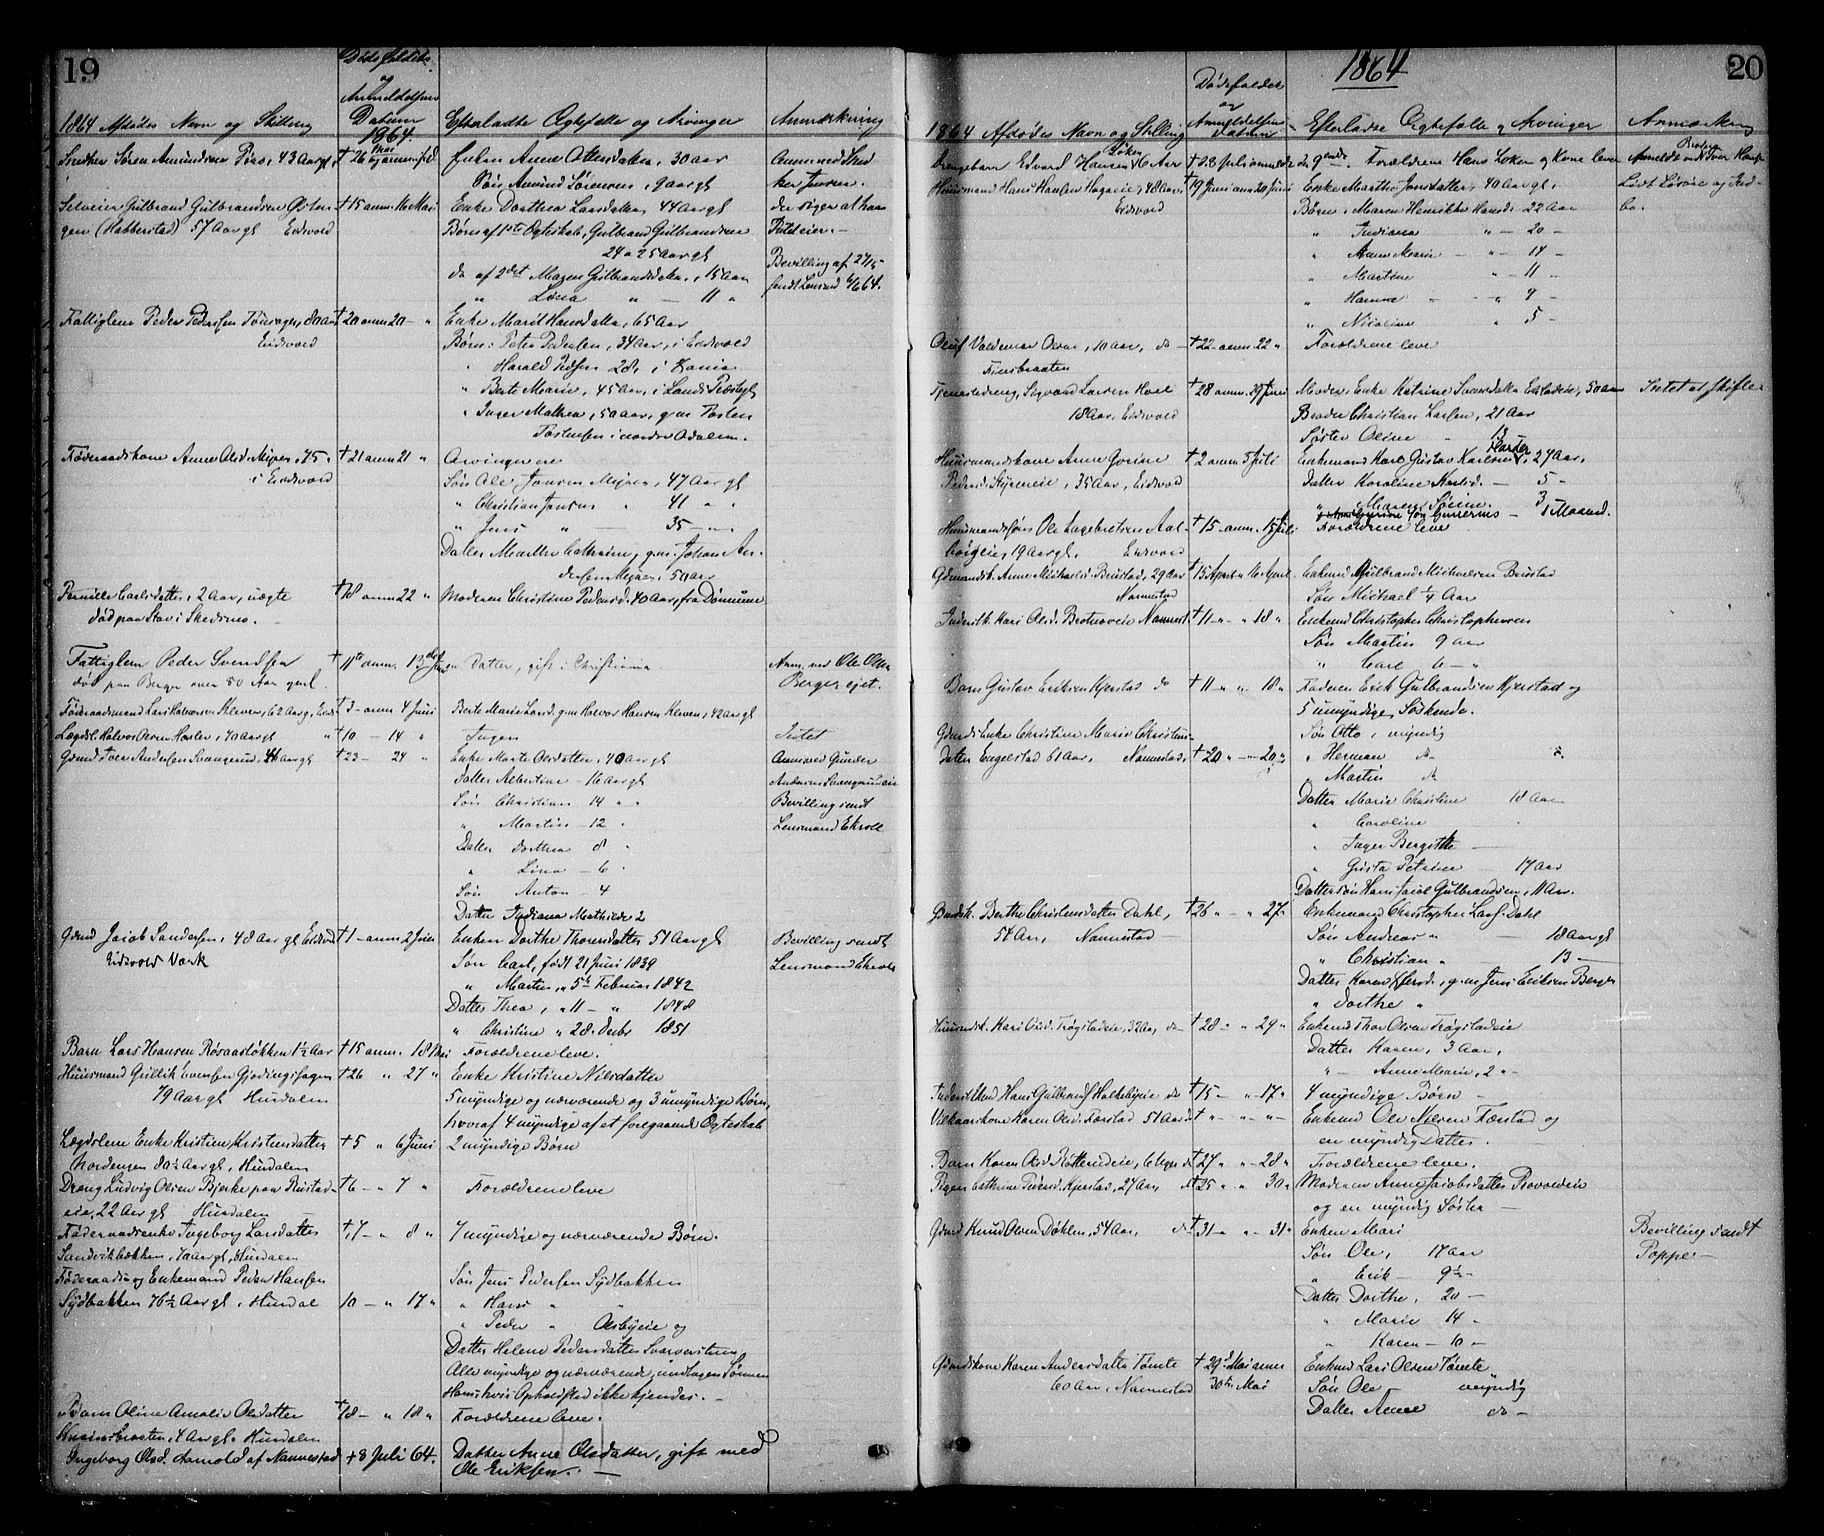 19
1864 Afdødes Navn og Stilling
Dødsfaldets og Anmeldelsens Datum 1864.
Efterladte Ægtefælle og Arvinger
Anmærkning
Søren Amundsen 43 Aar gl
† 26 Mai
Enken Anne Olsdatter, 30 aar
Søn Amund Sørensen, 9 aar gl
Selveier Gulbrand Gulbrandsen
(Habberstad) 57 Aar gl Eidsvold
† 15 anm. 16 Mai
Enke Dorthea Larsdatter, 44 aar gl
Børn af 1ste Ægteskab, Gulbrand Gulbrandsen
24 a 25 Aar gl
do af 2det Maren Gulbrandsdatter, 15 Aar
" Lina " — 11 "
der siger at han
Bevilling af 27/5
sendt Lensmd 4/6 64.
Fattiglem Peder Pedersen 80 Aar
Eidsvold
† 20 anm 20 — "
Enke Marit Hansdatter, 65 Aar
Børn: Peter Pedersen, 34 Aar, i Eidsvold
Harald Pedsen 28, i
" Berte Marie, 45 Aar, i Lands Præstegj
" Inger Mathea, 50 Aar, gm. Torsten
Torstensen i nordre Odalen.
Føderaadskone Anne Olsd. Mijren, 75
i Eidsvold
† 21 anm 21 "
Arvinger ere
Søn Ole Jensen Mijren, 47 Aar gl
" Christian Jensen " 41 " "
" Jens " — 35 — "
Datter Marthe Cathrine, gm. Johan An-
dersen Mijren, 50 aar
Pernille Carlsdatter, 2 Aar, uægte
død paa Stav i Skedsmo.
† 18 anm 22 "
Moderen Christine Pedersd. 40 Aar, fra
Fattiglem Peder Svendsen
død paa Berger over 50 Aar gml.
† 11te anm. 13de Juni
En Datter, gift i Christiania
Anm. ved Ole Olsen
Berger ejet.
Føderaadsmand Lars Halvorsen Kleven, 62 Aar gl, Eidsv
† 3 — anm 4 Juni
Berte Marie Larsd. gm Halvor Hansen Kleven, 42 aar gl
Lægdsl. Halvor Olsen 70 aar gl "
† 10 — 14 "
Ingen
Intet
Grmd Iver Andersen 46 aar gl
† 23 — 24 "
Enke Marte Olsdatter, 40 aar gl
Datter Albertine — 16 aar gl
Søn Christian 14 " "
" Martin — 12 "
Datter Dorthea 8 "
" Lina — 6 "
Søn Anton — 4
Datter Indiana Mathilde 2
Anm ved Gunder
Bevilling sendt
Lensmand Ekroll
Grmd Jacob Sandersen, 48 Aar gl Eidsvold
Eidsvold Værk
† 1 — anm 2 Juni
Enken Dorthe Thorersdatter 51 Aar gl
Søn Carl, født 21 Juni 1839
" Martin, " 5te Februar 1842
Datter Thea, " 11 — " 1848
" Christine " 28. Decbr 1851
Bevilling sendt
Lensmand Ekroll
Barn Lars Hansen Røsaasløkken 1½ Aar
† 15 anm. 18 Mai
Forældrene leve.
Huusmand Gullik Evensen Gjødingshagen
79 Aar gl Hurdalen
† 26 " 27 "
Enke Kristine Nilsdatter
5 myndige og nærværende og 3 umyndige Børn,
hvoraf 4 myndige af et foregaaende Ægteskab
Lægdslem Enke Kristien Kristensdatter
Nordengen 80½ Aar gl, Hurdalen
† 5 " 6 Juni
2 myndige Børn
Dreng Ludvig Olsen Bjerke paa Rustad-
eie, 22 Aar gl Hurdalen —
† 6 — " 7 "
Forældrene leve
Føderaadsenke Ingeborg Larsdatter
Sandvikbakken, 70 aar gl, Hurdalen
† 7 — " 8 "
7 myndige og nærværende Børn.
Føderaads og Enkemand Peder Hansen
Sydbakken 76½ Aar gl, Hurdal
10 — " 17 "
Søn Jens Pedersen Sydbakken
" Hans " "
" Peder " Olsbyeie og
Datter Helene Pedersdatter
Alle myndige og nærværende, undtagen Sønnen
Hans hvis Opholdsted ikke kjendes. —
Barn Oline Amalie Olsdatter
4 Aar gl. Hurdalen
† 18 — " 18 "
Forældrene leve.
Ingeborg Olsd. Aamold af Nannestad
+ 8 Juli 64.
Datter Anne Olsdatter, gift med
Ole Eriksen. —
20
1864
1864 Afdødes Navn og Stilling
Dødsfaldets og Anmeldelsens Datum
Efterladte Ægtefælle og Arvinger
Anmærkning
Drengebarn Edvard Hansen Løken 6 Aar
† 28 Juli anmeldt
Forældrene Hans Løken og Kone leve
Huusmand Hans Hansen Hagaeie, 48 Aar,
Eidsvold
† 19 Juni anm 20 Juni
Enke Marthe Jonsdatter, 40 Aar gl.
Børn: Maren Henrikke Hansd. 22 Aar
" Indiana " — 20 —
" Anne Marie — " — 14 —
" Martine " — 11 —
" Hanna — " 9 —
" Nicoline " 5 —
Oluf Valdemar Olsen, 10 Aar, do —
Finsbraaten
† 22 — anm 22 "
Forældrene leve
Tjenestedreng, Sigvard Larsen
18 Aar, Eidsvold
† 28 anm. 29 Juni
Moder Enke Katrine 50 aar
Broder Christian Larsen, 21 Aar
Søster Oline " 13 —
Intet at skifte
Huusmandskone Anne Gurine
Pedersd. 35 Aar, Eidsvold
† 2 anm 5 Juli
Enkemand Karl Gustav Karlsen, 27 Aar,
Datter Karoline Karlsd. — 5 —
" Maren Sørine. 3
1 Maaned.
Huusmandssøn Ole Engebretsen Aal-
19 Aar gl, Eidsvold
† 15 — anm. 15 Juli
Forældrene leve
Grmandsk. Anne Michaelsd. Brustad, 29 Aar
Nannestad
† 15 April " 16 April
Enkemd Gulbrand Michaelsen Brustad
Søn Michael ¼ Aar
Inderstk. Kari Olsd. Nannest.
† 11 — " " 18 "
Enkemd Christopher Christophersen
Søn Martin 9 aar
" Carl 6 — "
Barn Gustav Eriksen Kjerstad do
† 11 — " " 18 "
Faderen Erik Gulbrandsen Kjerstad og
5 umyndige Søskende.
Grmds Enke Christine Marie Christens-
datter Engelstad 61 Aar, Nannestad,
† 20 " — " 20 "
Søn Otto, myndig
" Herman do
" Martin do
Datter Marie Christine 18 Aar
" Caroline
" Inger Bergitte —
" Gusta Petrine — 17 Aar
Dattersøn Hans Jacob Gulbrandsen, 11 Aar.
Grmdsk. Berthe Christensdatter Dahl,
54 Aar, Nannestad —
† 26 " — " 27 "
Enkemand Christopher Larss. Dahl
Søn Andreas " — 18 Aar gl
" Christian " 13 —
Datter Karen gm Jens Eriksen Berger
" Dorthe "
Huusmdsk. Kari Olsd. Trøgstadeie, 32 Aar, do —
† 28 — " 29 "
Enkemd Thor Olsen Trøgstadeie
Datter Karen, 3 Aar,
" — Anne Marie, 2 " —
Inderst Enkemd Hans Gulbrands Holtebyeie do
† 15 — " — 17 "
4 myndige Børn —
Vilkaarskone Karen Olsd. 51 Aar do
† " — " — " —
Enkemd Ole Nilsen og
en myndig Datter.
Barn Karen Olsd.
† 27 " " — 28 "
Forældrene leve.
Pigen Cathrine Pedersd. Kjerstad, 27 Aar, do
† 25 " " 30 "
Moderen Anne Jacobsdatter
og en myndig Søster —
Grmd Knud Olsen Døhlen, 54 Aar, do —
† 31 — " — 31 "
Enken Mari
Søn Ole, 17 aar
" Erik — 9½ —
Datter Dorthe, 20 —
" Marie 14 "
" Karen — 10 —
Bevilling sendt
Poppe —
Grmdskone Karen Andersdatter Tømte
60 Aar, Nannestad
† 29 Mai anm
30te Mai
Enkemd Lars Olsen Tømte
Søn Ole — myndig
Datter Anne do —